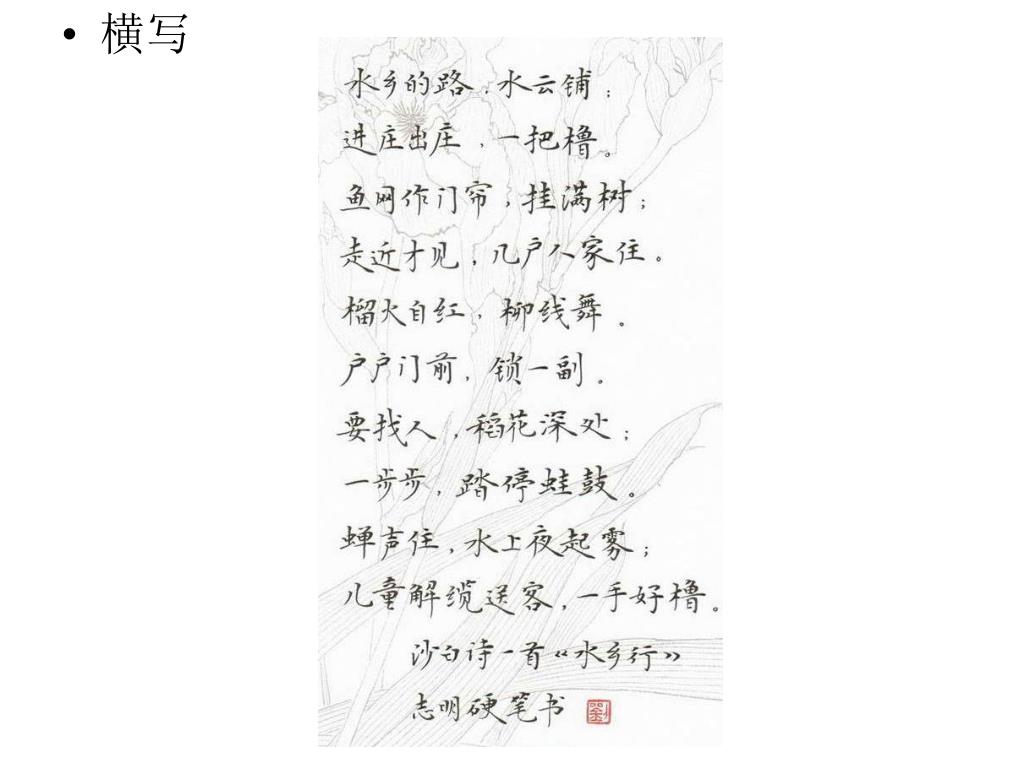 • 横写
水乡的路，水云铺；
进庄出庄，一把橹。
鱼网作门帘，挂满树；
走近才见，几户人家住。
榴火自红，柳线舞。
户户门前，锁一副。
要找人，稻花深处；
一步步，踏停蛙鼓。
蝉声住，水上夜起雾；
儿童解缆送客，一手好橹。
沙白诗一首《水乡行》
志明硬笔书 劉